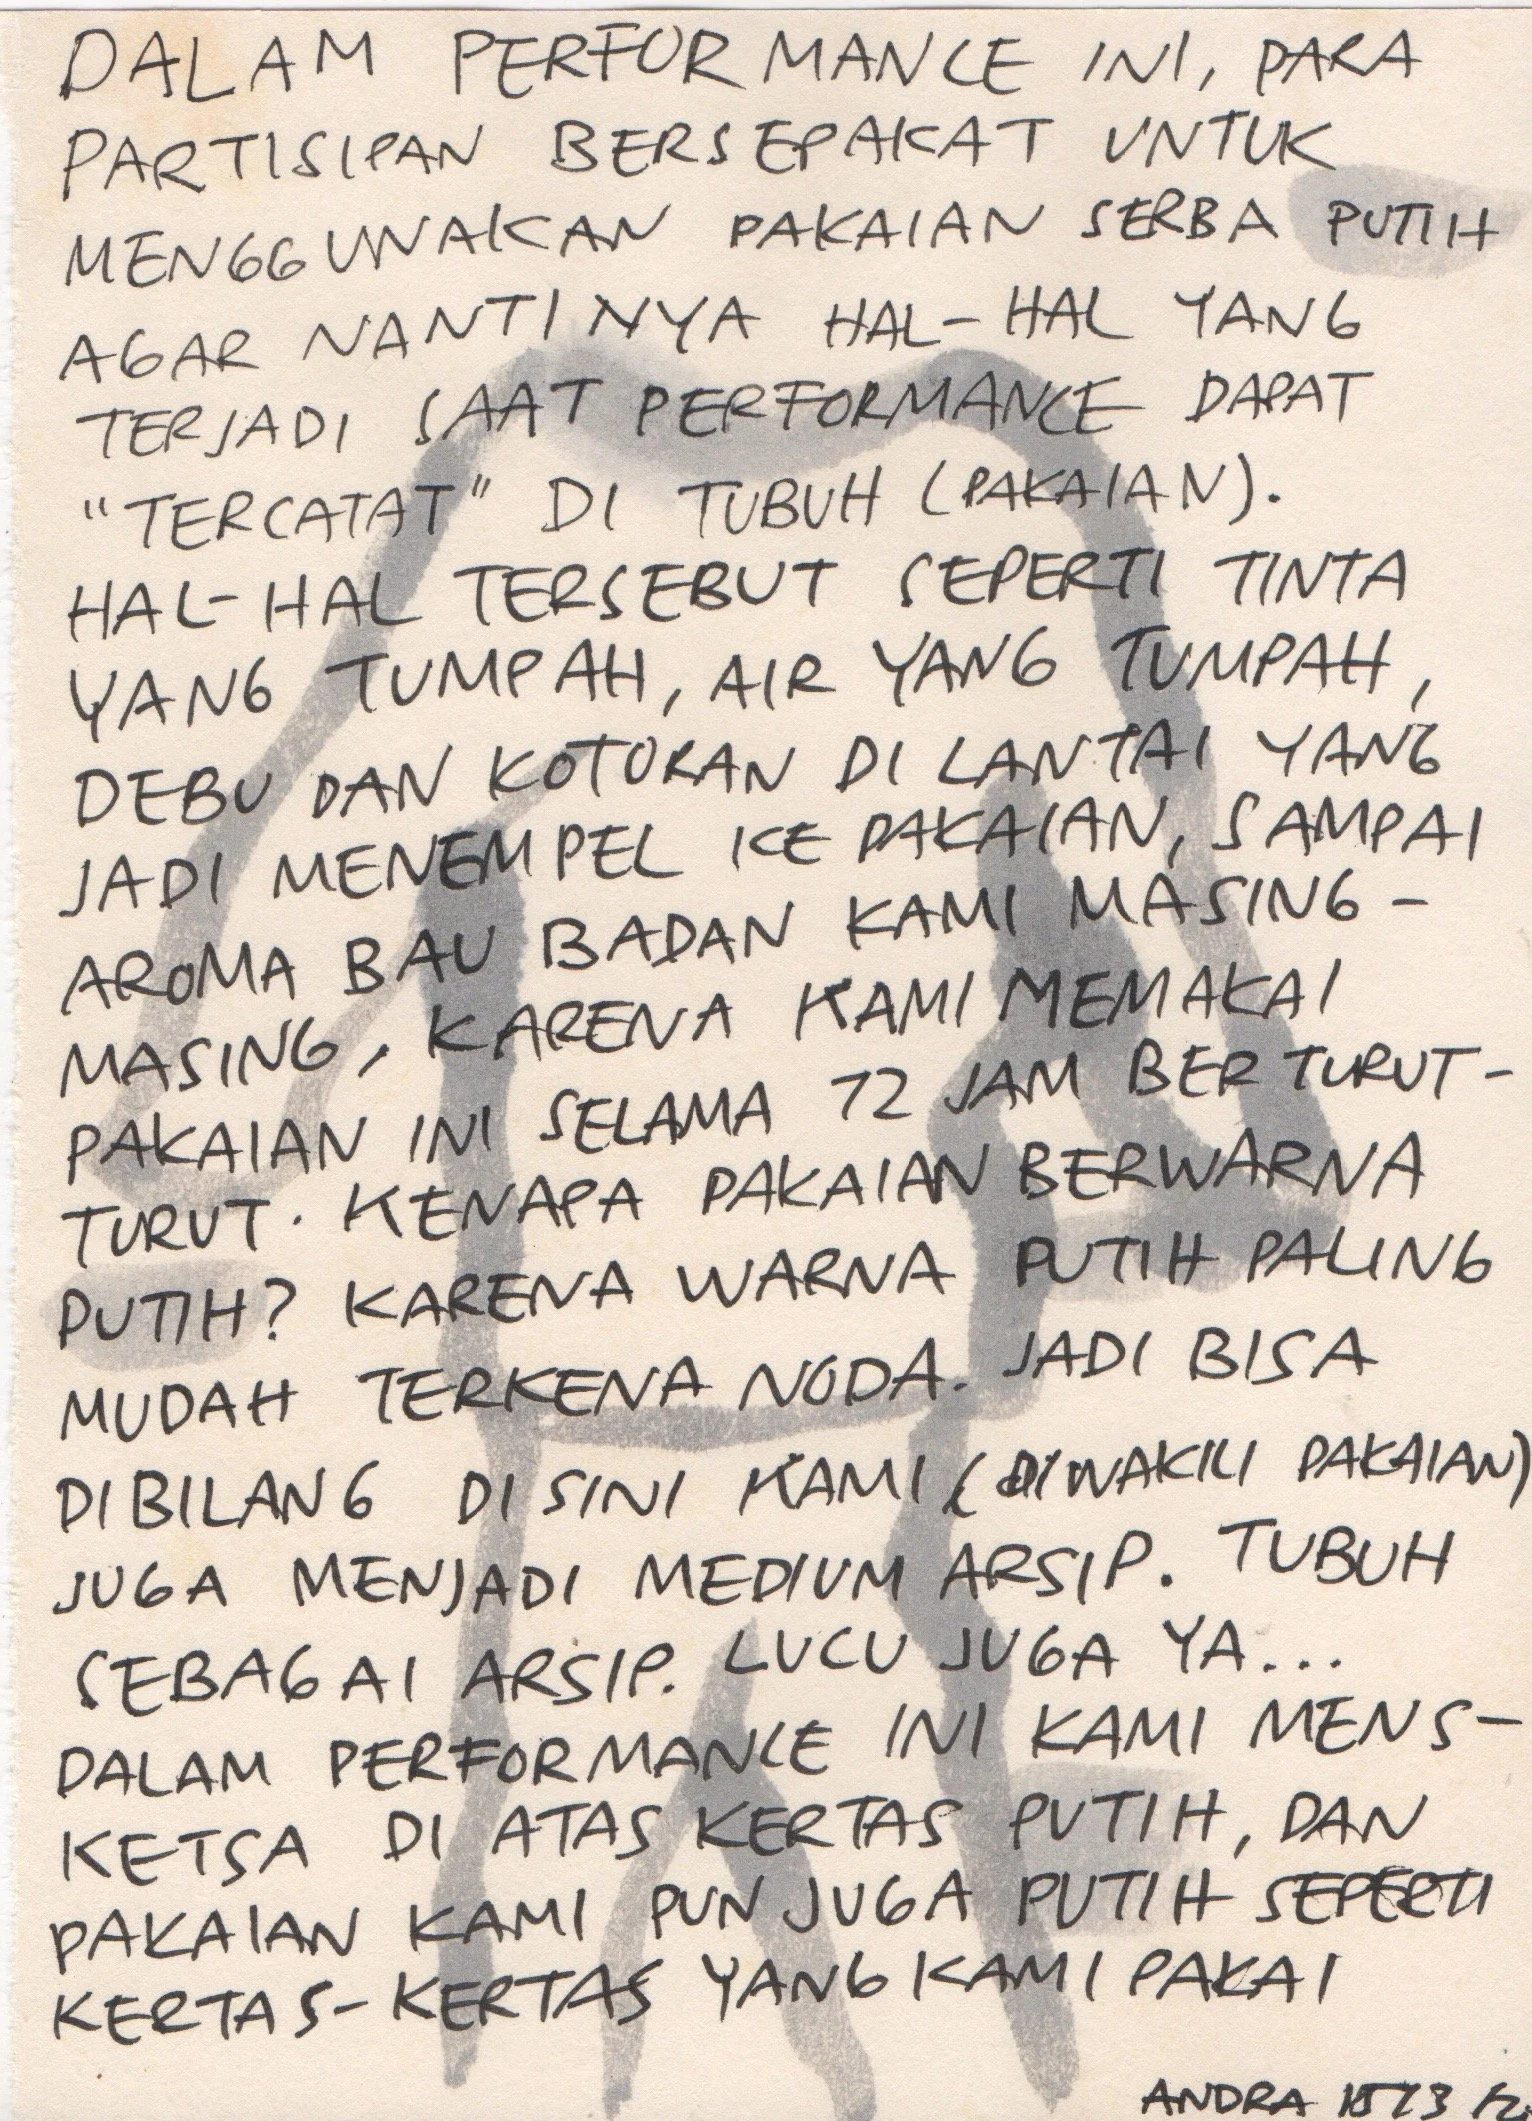 DALAM PERFORMANCE INI, PARA
PARTISIPAN BERSEPAKAT UNTUK
MENGGUNAKAN PAKAIAN SERBA PUTIH
AGAR NANTINYA HAL-HAL YANG
TERJADI SAAT PERFORMANCE DAPAT
"TERCATAT" DI TUBUH (PAKAIAN).
HAL-HAL TERSEBUT SEPERTI TINTA
YANG TUMPAH, AIR YANG TUMPAH,
DEBU DAN KOTORAN DI LANTAI YANG
JADI MENEMPEL KE PAKAIAN, SAMPAI
AROMA BAU BADAN KAMI MASING-
MASING, KARENA KAMI MEMAKAI
PAKAIAN INI SELAMA 72 JAM BERTURUT-
TURUT. KENAPA PAKAIAN BERWARNA
PUTIH? KARENA WARNA PUTIH PALING
MUDAH TERKENA NODA. JADI BISA
DIBILANG DISINI KAMI (DIWAKILI PAKAIAN)
JUGA MENJADI MEDIUM ARSIP. TUBUH
SEBAGAI ARSIP. LUCU JUGA YA...
DALAM PERFORMANCE INI KAMI MENS-
KETSA DI ATAS KERTAS PUTIH, DAN
PAKAIAN KAMI PUN JUGA PUTIH SEPERTI
KERTAS-KERTAS YANG KAMI PAKAI
ANDRA